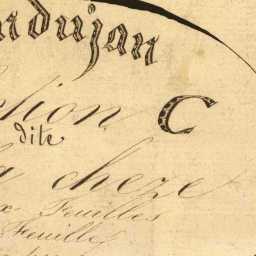 ndujan
ction C
dite
la cheze
x Feuilles
Feuille